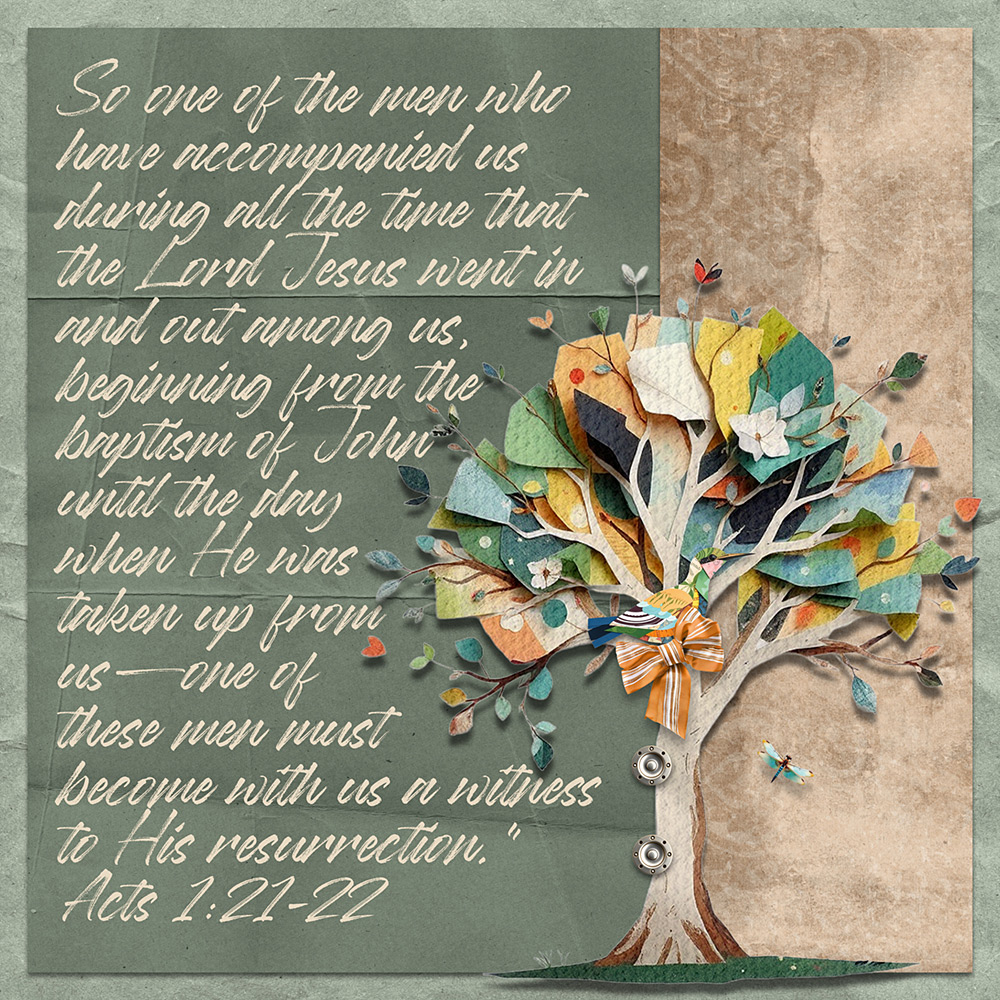 So one of the men who
have accompanied us
during all the time that
the Lord Jesus went in
and out among us,
beginning from the
baptism of John
until the day
when He was
taken up from
us—one of
these men must
become with us a witness
to His resurrection."
Acts 1:21-22